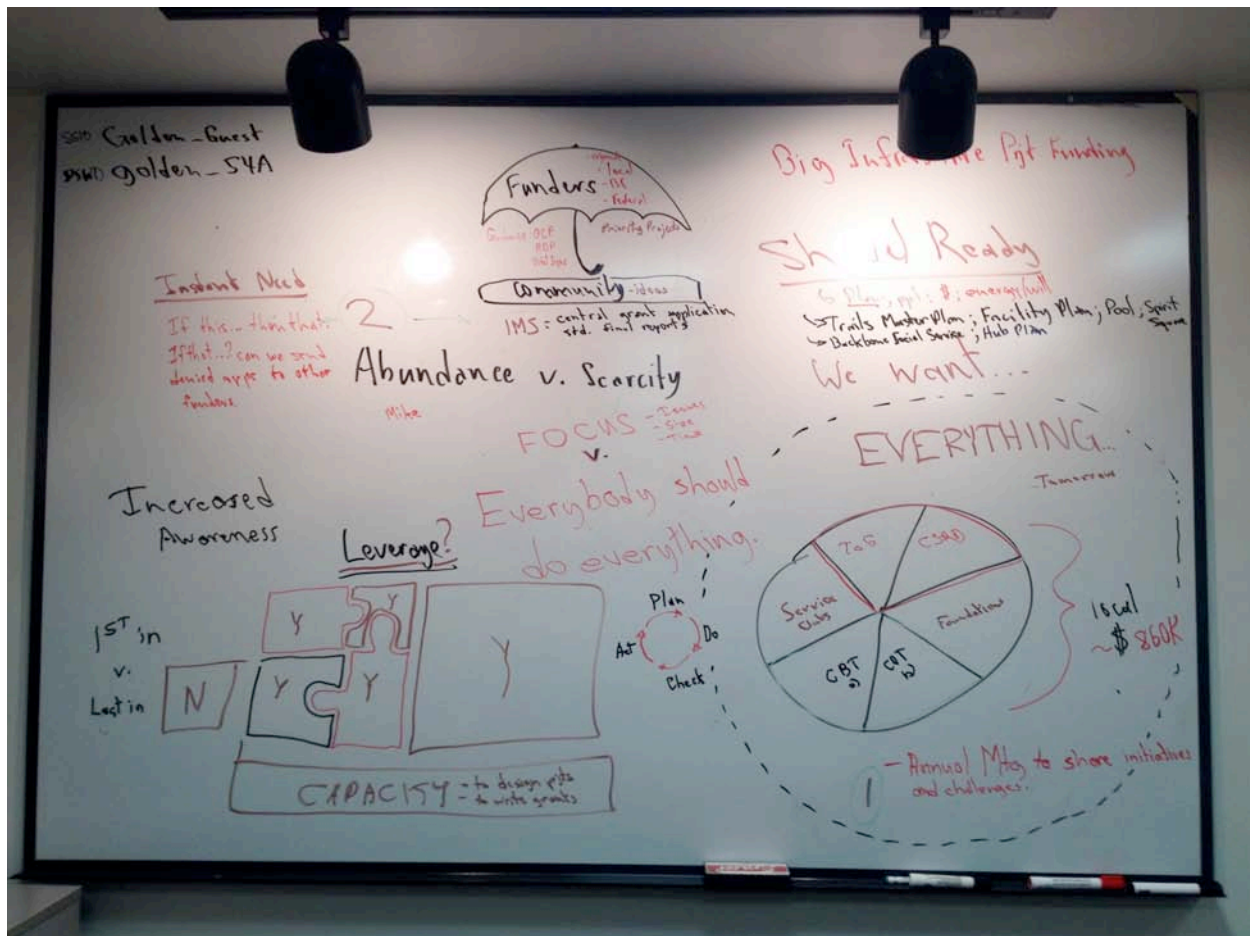 SSID Golden_Guest
PSWD golden_S4A
Funders
- Local
- BC
- Federal
Guidance: OCP
Priority Projects
Community - ideas
IMS: central grant application
std. final reports
2
Big Pjt Funding
Ready
Plan; ppl; $; energy/will
Trails Master Plan; Facility Plan; Pool; Spirit
Square
Backbone Social Service; Hub Plan
We want...
EVERYTHING...
Tomorrow
Instant Need
If this... then that.
If that..? can we send
denied apps to other
funders.
Abundance v. Scarcity
Mike
FOCUS - Issues
- Size
- Time
v.
Everybody should
do everything.
Increased
Awareness
Leverage?
1ST in
v.
Last in
N
Y
Y
Y
Y
Y
CAPACITY - to design pjts
- to write grants
Plan
Do
Check
Act
ToG
CSRD
Foundation
CBT
b)
CBT
a)
Service
Clubs
local
~$860K
1
- Annual Mtg to share initiatives
and challenges.